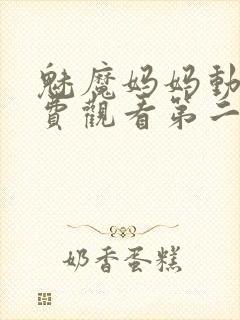 魅魔妈妈動
費觀看第二
奶香蛋糕